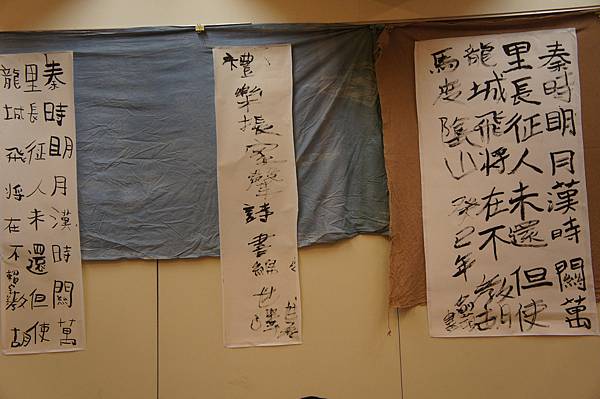 秦時明月漢時關萬
里長征人未還但使
龍城飛將在不教胡
馬度陰山 癸巳年
禮樂振家聲詩書綿世澤
秦時明月漢時關萬
里長征人未還但使
龍城飛將在不教胡